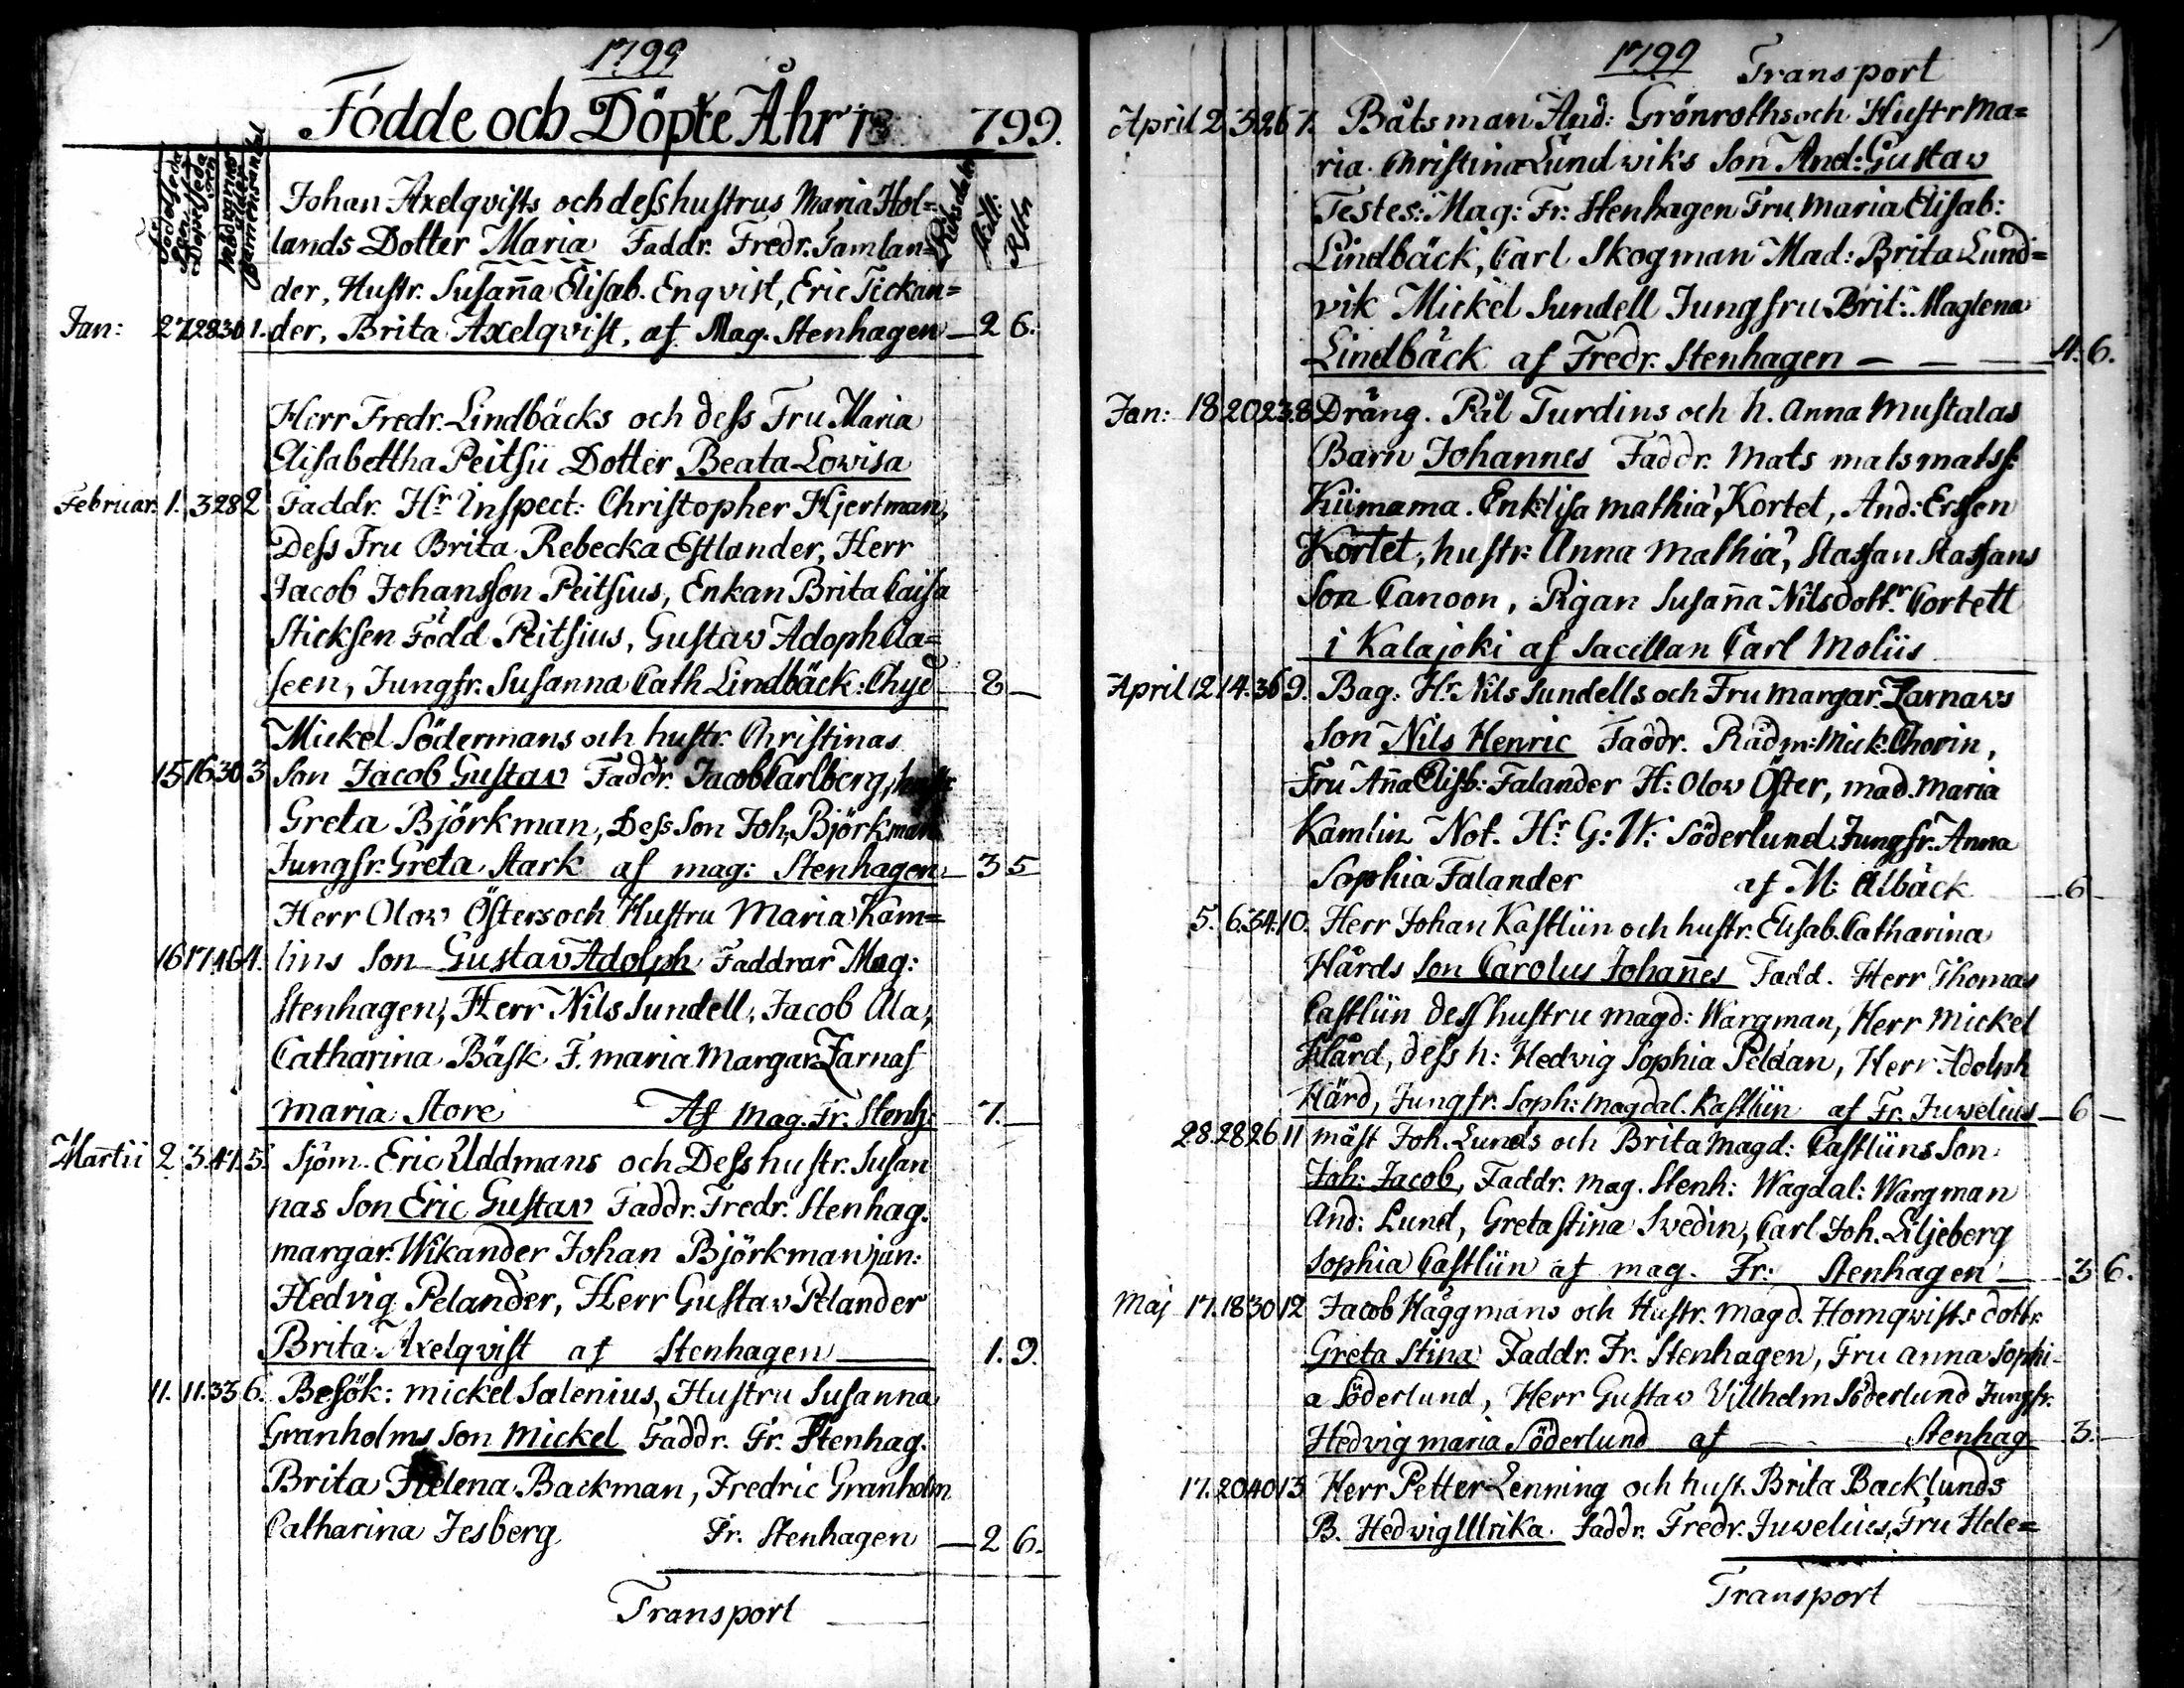 1799
Födde och Döpte Åhr 1799.
Johan Axelqvists och dess hustrus Maria Hol=
lands Dotter Maria Faddr. Fredr. Samlan=
der, Hustr. Susanna Elisab. Enqvist, Eric Tickan=
Jan: 27. 28 30 1. der, Brita Axelqvist, af Mag. Stenhagen — 2 6.
Herr Fredr. Lindbäcks och dess Fru Maria
Elisabettha Peitsii Dotter Beata Lowisa
Februar. 1. 3 28 2 Faddr. Hr Inspect: Christopher Hjertman,
Dess Fru Brita Rebecka Estlander, Herr
Jacob Johansson Peitsius, Enkan Brita Caisa
Sticksen Född Peitsius, Gustav Adoph Cla=
seen, Jungfr. Susanna Cath Lindbäck: Chyd 8 —
Mickel Södermans och hustr. Christinas
15 16 30 3 Son Jacob Gustav Faddr. Jacob Carlberg, hustr
Greta Björkman, Dess Son Joh. Björkman
Jungfr. Greta Stark af mag: Stenhagen — 3 5
Herr Olow Östers och Hustru Maria Kam=
16 17. 40 4. lins Son Gustav Adolph Faddrar Mag:
Stenhagen, Herr Nils Sundell, Jacob Ala,
Catharina Bäsk F. maria Margar. Zarnas
maria Store Af Mag. Fr. Stenh: 7. —
Martii 2. 3. 41. 5. Sjöm. Eric Uddmans och Dess hustr. Susan
nas Son Eric Gustav Faddr. Fredr. Stenhag.
margar. Wikander Johan Björkman jun:
Hedvig Pelander, Herr Gustav Pelander
Brita Axelqvist af Stenhagen — 1. 9.
11. 11. 33 6. Besök: mickel Salenius, Hustru Susanna
Granholms Son Mickel Faddr. Fr. Stenhag.
Brita Helena Backman, Fredric Granholm
Catharina Jesberg Fr. Stenhagen — 2 6.
Transport
1799 Transport
April 2. 3. 26 7. Båtsman And: Grönroths och Hustr Ma=
ria Christina Lundwiks Son And: Gustav
Testes: Mag: Fr. Stenhagen Fru Maria Elisab:
Lindbäck, Carl Skogman Mad: Brita Lund=
vik Mickel Sundell Jungfru Brit: Maglena
Lindbäck af Fredr. Stenhagen — — — 4. 6.
Jan: 18 20 23. 8 Dräng. Pål Turdins och h. Anna Mustalas
Barn Johannes Faddr. Mats mats matss:
Kiimama. Enk: lisa mathia, Kortet, And: Ersson
Kortet, hustr. Anna Mathia, Staffan Staffans
Son Canoon, Pigan Susanna Nilsdottr. Cortett
i Kalajoki af Sacellan Carl Moliis
April 12. 14. 36 9. Bag: Hr. Nils Sundells och Fru margar. Zarnaws
Son Nils Henric Faddr. Rådm: Mick: Chorin,
Fru Anna Elisb: Falander H: Olow Öster, mad. Maria
Kamlin Not. Hr. G: W: Söderlund Jungfr. Anna
Sophia Falander af M: Ålbäck — 6 —
5. 6. 34. 10. Herr Johan Kastliin och hustr. Elisab. Catharina
Hårds Son Carolus Johannes Fadd. Herr Thomas
Castliin dess hustru magd: Wargman, Herr Mickel
Hård, dess h: Hedvig Sophia Peldan, Herr Adolph
Hård, Jungfr. Soph: Magdal. Kastliin af Fr. Juwelius — 6 —
28. 28 26 11 mäst Joh. Lunds och Brita Magd: Castliins Son
Joh: Jacob, Faddr. mag. Stenh: Wagdal: Wargman
And: Lund, Greta Stina Svedin, Carl Joh. Liljeberg
Sophia Castliin af mag. Fr: Stenhagen — 3 6.
Maj 17. 18 30 12 Jacob Häggmans och Hustr. magd. Homqvists dottr.
Greta Stina Faddr. Fr. Stenhagen, Fru Anna Sophi
a Söderlund, Herr Gustav Villhelm Söderlund Jungfr.
Hedvig Maria Söderlund af Stenhag 3. —
17. 20 40 13 Herr Petter Lenning och hust. Brita Backlunds
B. Hedvig Ulrika. Faddr. Fredr. Juwelius, Fru Hele=
Transport